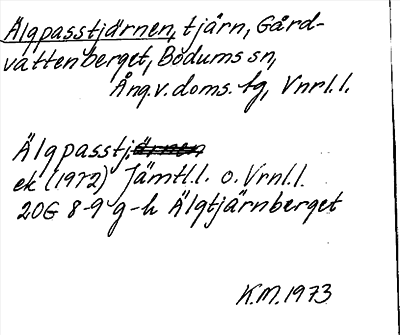 Älgpasstjärnen, tjärn, Gård-
vattenberget, Bodums sn,
Ång.v.doms. tg, Vnrl.l.
Älgpasstj.
ek (1972) Jämtl.l. o. Vrnl.l.
20G 8-9 g-h Älgtjärnberget
K.M. 1973